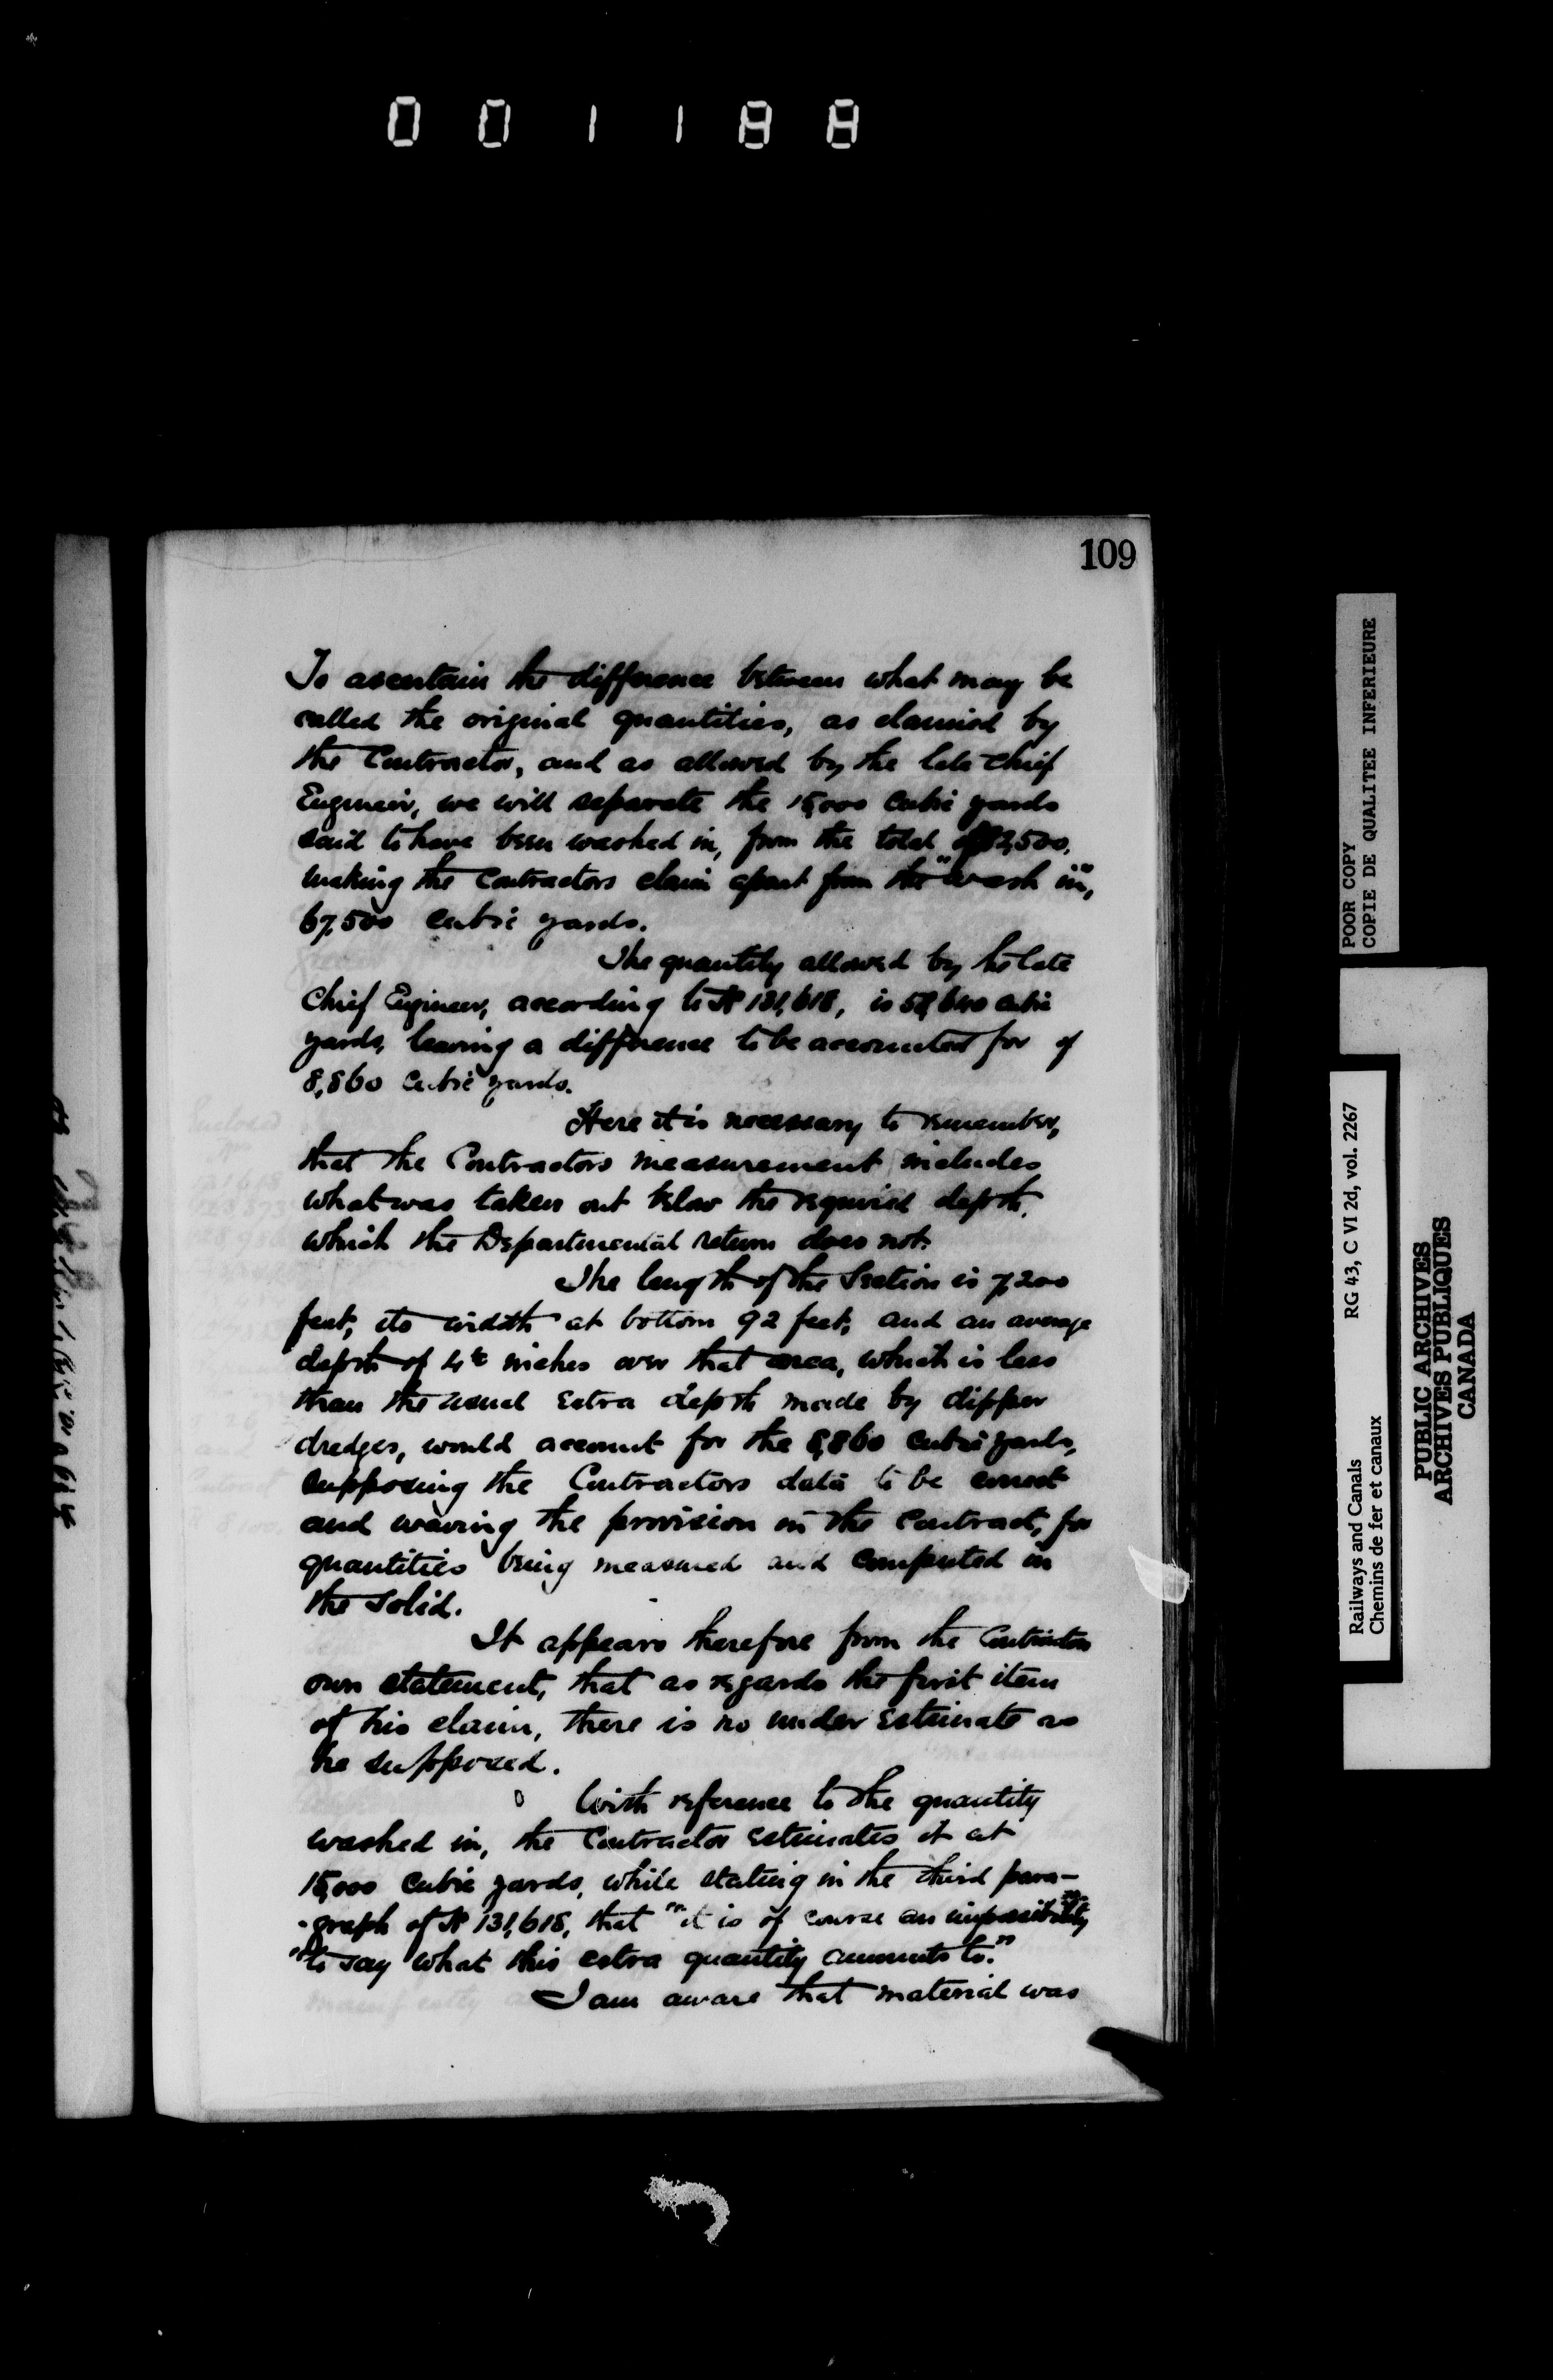 001188
109
To ascertain the difference between what may be
called the original quantities, as claimed by
the Contractor, and as allowed by the late Chief
Engineer, we will separate the 15,000 cubic yards
said to have been washed in, from the total of 82,500,
making the Contractors claim apart from the "wash in",
67,500 cubic yards.
The quantity allowed by the late
Chief Engineer, according to No 131,618, is 58,640 cubic
yards, leaving a difference to be accounted for of
8,860 cubic yards.
Here it is necessary to remember,
that the Contractors measurement includes
what was taken out below the required depth,
which the Departmental return does not.
The length of the Section is 7,200
feet, its width at bottom 92 feet, and an average
depth of 4 inches over that area, which is less
than the usual extra depth made by dipper
dredges, would account for the 8,860 cubic yards,
supposing the Contractors data to be correct
and waving the provision in the Contract, for
quantities being measured and computed in
the solid.
It appears therefore from the Contractors
own statement, that as regards the first item
of his claim, there is no under estimate as
he supposed.
With reference to the quantity
washed in, the Contractor estimates it at
15,000 cubic yards, while stating in the third para-
-graph of No 131,618, that "it is of course an impossibility
"to say what this extra quantity amounts to."
I am aware that material was
POOR COPY
COPIE DE QUALITEE INFERIEURE
RG 43, C VI 2d, vol. 2267
Railways and Canals
Chemins de fer et canaux
PUBLIC ARCHIVES
ARCHIVES PUBLIQUES
CANADA